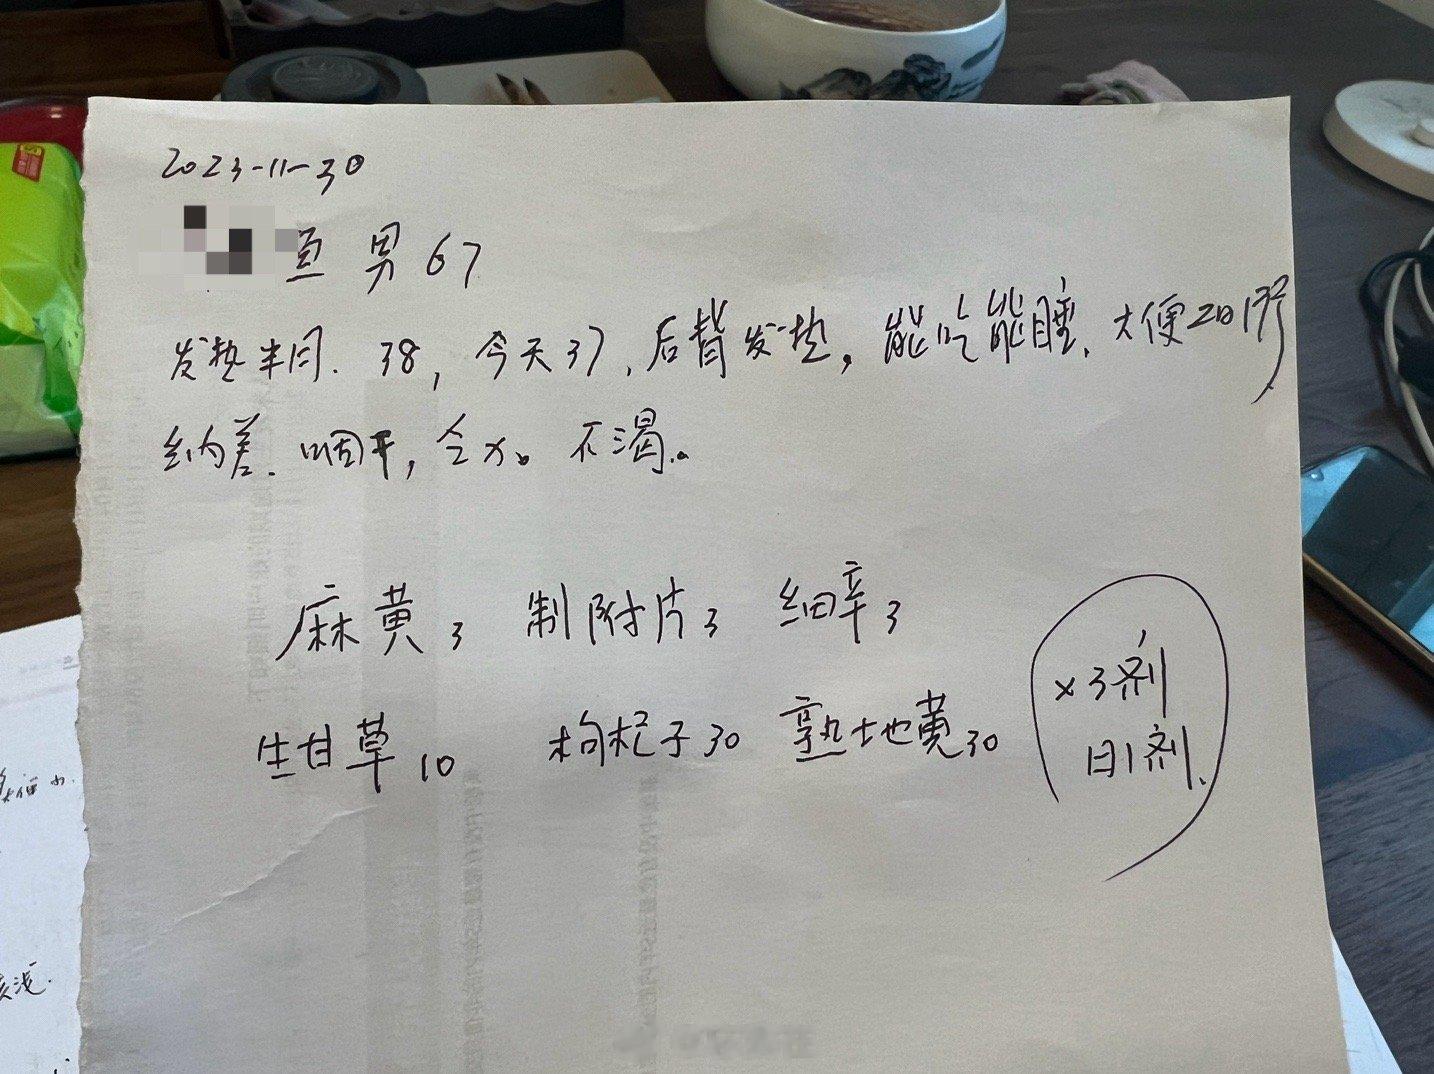 2023-11-30
男 67
发热半月、38，今天37，后背发热，能吃能睡、大便2日1行
纳差、咽干，乏力。不渴。
麻黄3 制附片3 细辛3
生甘草10 枸杞子30 熟地黄30
×3剂
日1剂.
大便